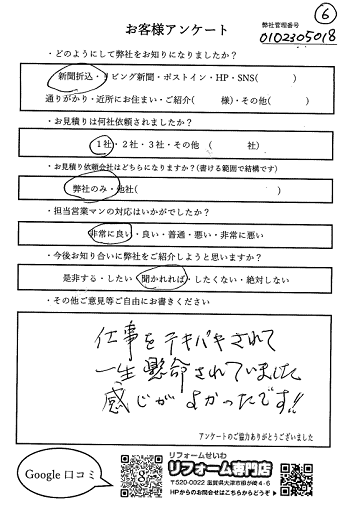 6
お客様アンケート
弊社管理番号
0102305018
・どのようにして弊社をお知りになりましたか？
新聞折込・リビング新聞・ポストイン・HP・SNS(　　　)
通りがかり・近所にお住まい・ご紹介(　　　様)・その他(　　　)
・お見積りは何社依頼されましたか？
1社・2社・3社・その他 (　　　社)
・お見積り依頼会社はどちらになりますか？(書ける範囲で結構です)
弊社のみ・他社(　　　)
・担当営業マンの対応はいかがでしたか？
非常に良い・良い・普通・悪い・非常に悪い
・今後お知り合いに弊社をご紹介しようと思いますか？
是非する・したい・聞かれれば・したくない・絶対しない
・その他ご意見等ご自由にお書きください
仕事をテキパキされて
一生懸命されていました
感じがよかったです!!
アンケートのご協力ありがとうございました
Google 口コミ
リフォームせいわ
リフォーム専門店
〒520-0022 滋賀県大津市柳が崎4-6
HPからのお問合せはこちらからどうぞ